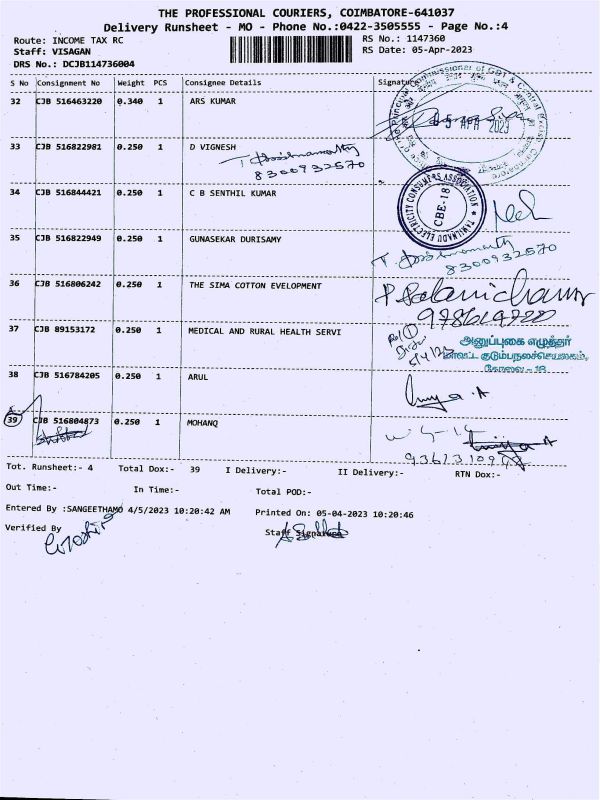 THE PROFESSIONAL COURIERS, COIMBATORE-641037
Delivery Runsheet - MO - Phone No.:0422-3505555 - Page No.:4
Route: INCOME TAX RC
RS No.: 1147360
Staff: VISAGAN
RS Date: 05-Apr-2023
DRS No.: DCJB114736004
S No Consignment No Weight PCS Consignee Details Signature
32 CJB 516463220 0.340 1 ARS KUMAR
5 APR 2023
33 CJB 516822981 0.250 1 D VIGNESH
8300932570
34 CJB 516844421 0.250 1 C B SENTHIL KUMAR
TAMILNADU ELECTRICITY CONSUMERS ASSOCIATION
CBE-18
35 CJB 516822949 0.250 1 GUNASEKAR DURISAMY
8300932570
36 CJB 516806242 0.250 1 THE SIMA COTTON EVELOPMENT
37 CJB 89153172 0.250 1 MEDICAL AND RURAL HEALTH SERVI
அனுப்புகை எழுத்தர்
மாவட்ட குடும்பநலச்செயலகம்,
கோவை - 18
38 CJB 516784205 0.250 1 ARUL
39 CJB 516804873 0.250 1 MOHANQ
Tot. Runsheet:- 4 Total Dox:- 39 I Delivery:- II Delivery:- RTN Dox:-
Out Time:- In Time:- Total POD:-
Entered By :SANGEETHAMO 4/5/2023 10:20:42 AM Printed On: 05-04-2023 10:20:46
Verified By Staff Signature